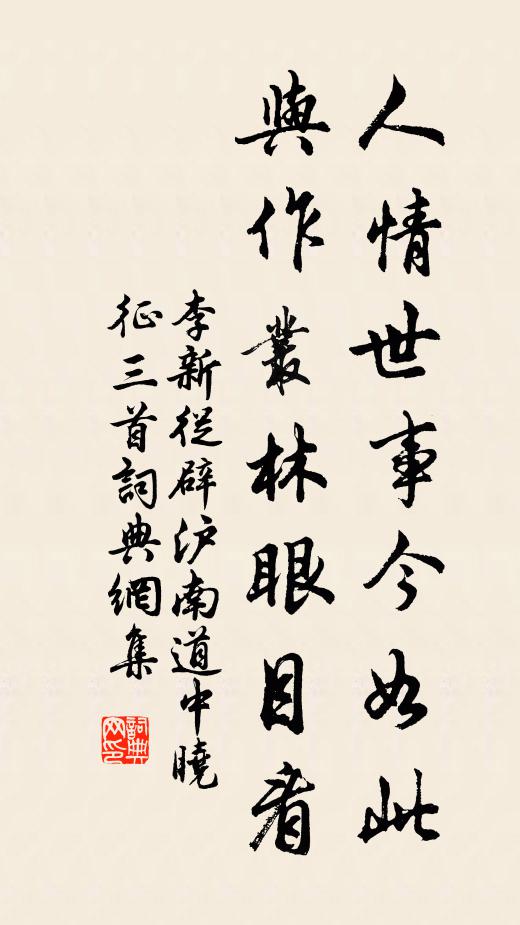 人情世事今如此
與作叢林眼目看
李新從辟沪南道中曉
征三首詞典網集
詞典网印